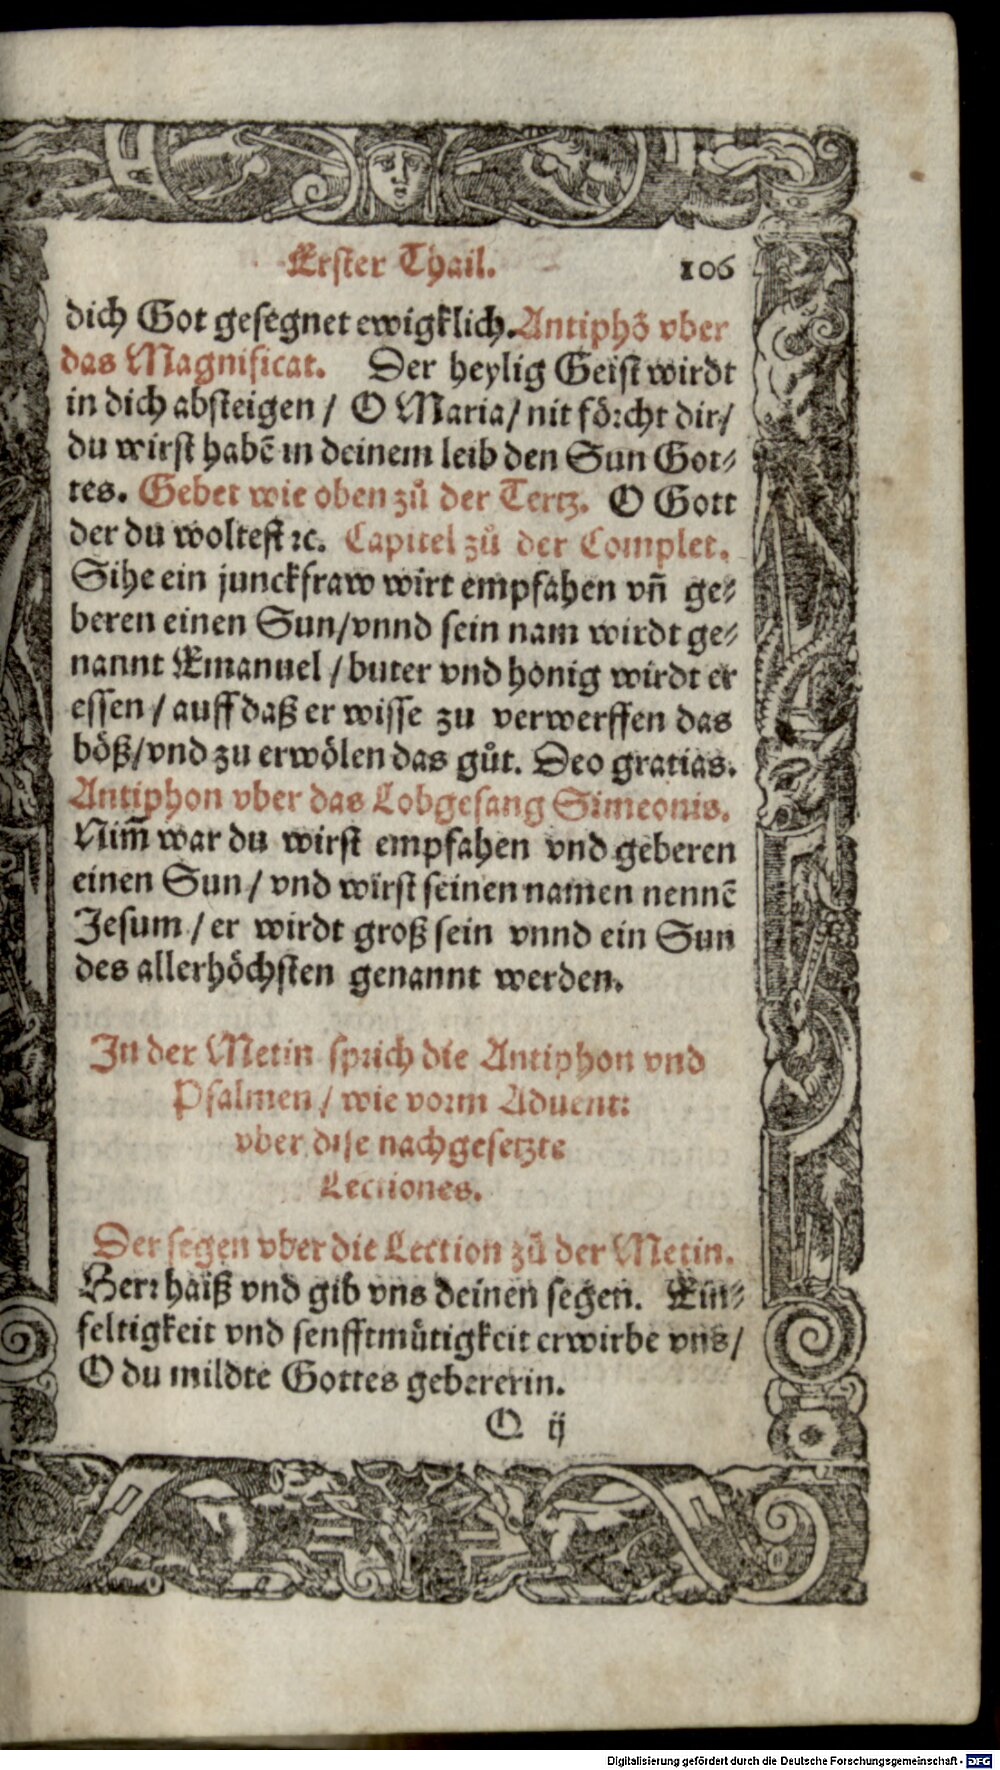 Erster Thail. 106
dich Got gesegnet ewigklich. Antiphō vber
das Magnificat. Der heylig Geist wirdt
in dich absteigen / O Maria / nit förcht dir /
du wirst habē in deinem leib den Sun Got⸗
tes. Gebet wie oben zů der Tertz. O Gott
der du woltest ꝛc. Capitel zů der Complet.
Sihe ein junckfraw wirt empfahen vñ ge⸗
beren einen Sun / vnnd sein nam wirdt ge⸗
nannt Emanuel / buter vnd honig wirdt er
essen / auff daß er wisse zu verwerffen das
böß / vnd zu erwölen das gůt. Deo gratias.
Antiphon vber das Lobgesang Simeonis.
Nim̃ war du wirst empfahen vnd geberen
einen Sun / vnd wirst seinen namen nennē
Jesum / er wirdt groß sein vnnd ein Sun
des allerhöchsten genannt werden.
In der Metin sprich die Antiphon vnd
Psalmen / wie vorm Aduent:
vber dise nachgesetzte
Lectiones.
Der segen vber die Lection zů der Metin.
Herr haiß vnd gib vns deinen segen. Ein⸗
feltigkeit vnd senfftmütigkeit erwirbe vns /
O du mildte Gottes gebererin.
O ij
Digitalisierung gefördert durch die Deutsche Forschungsgemeinschaft - DFG